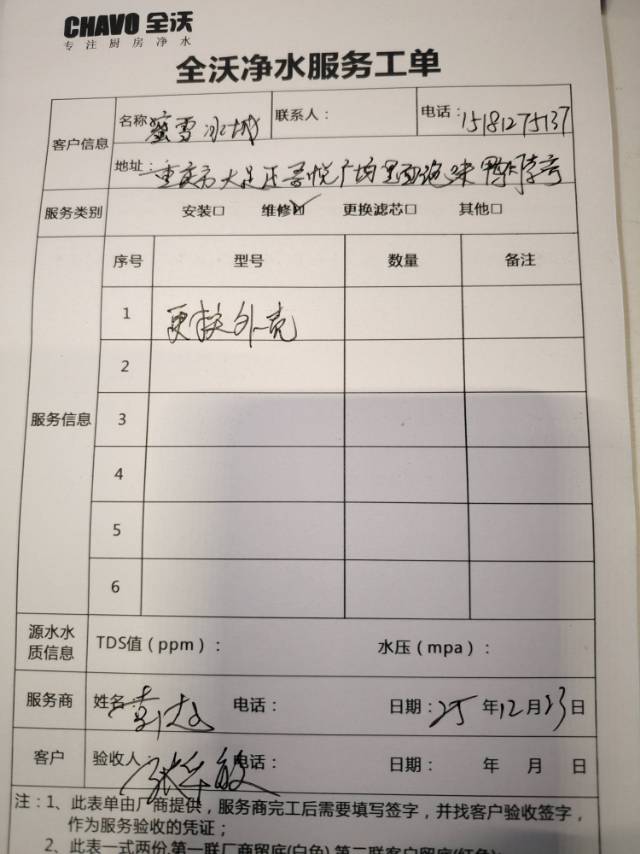 CHAVO 全沃
专注厨房净水
全沃净水服务工单
客户信息
名称 蜜雪冰城 联系人： 电话：15181275137
地址：重庆市大足区吾悦广场里面
服务类别 安装□ 维修☑ 更换滤芯□ 其他□
服务信息
序号 型号 数量 备注
1 更换外壳
2
3
4
5
6
源水水质信息 TDS值（ppm）： 水压（mpa）：
服务商 姓名 电话： 日期：25 年 12 月 23 日
客户 验收人 张 敏 电话： 日期： 年 月 日
注：1、此表单由厂商提供，服务商完工后需要填写签字，并找客户验收签字，
作为服务验收的凭证；
2、此表一式两份,第一联厂商留底(白色),第二联客户留底(红色)